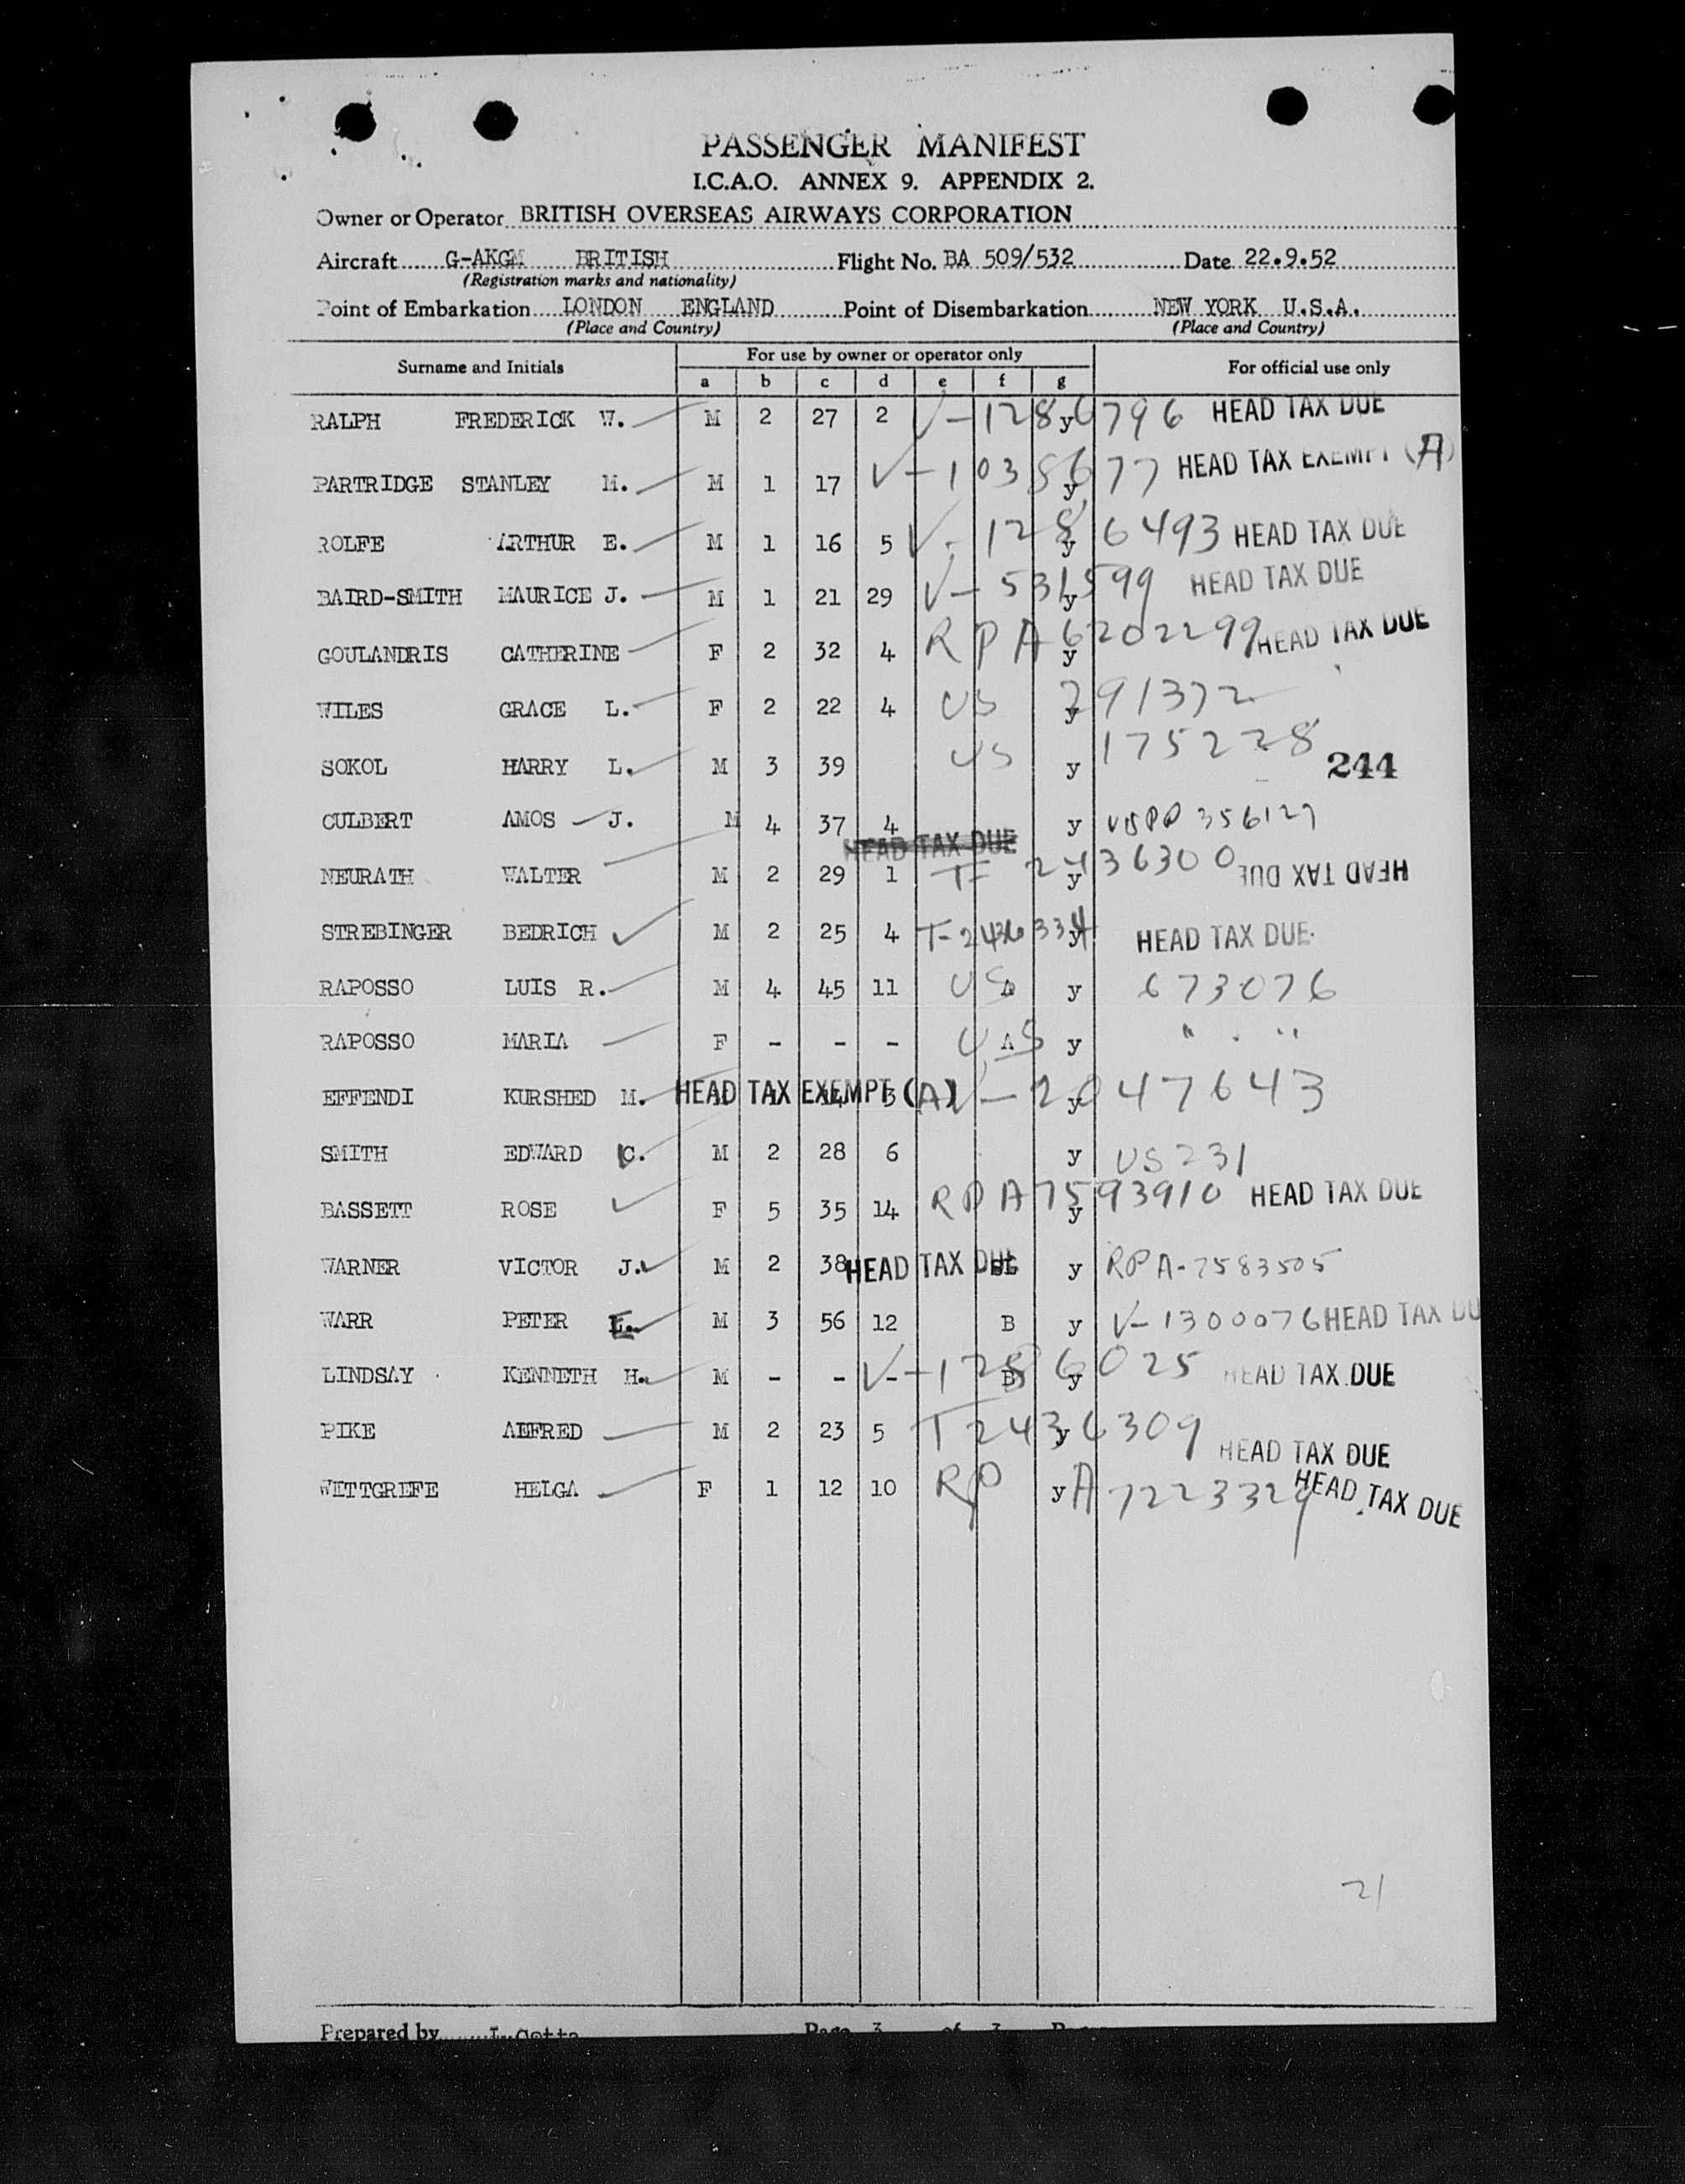 PASSENGER MANIFEST
I.C.A.O. ANNEX 9. APPENDIX 2.
Owner or Operator BRITISH OVERSEAS AIRWAYS CORPORATION
Aircraft G-AKGM BRITISH Flight No. BA 509/532 Date 22.9.52
(Registration marks and nationality)
Point of Embarkation LONDON ENGLAND Point of Disembarkation NEW YORK U.S.A.
(Place and Country) (Place and Country)
Surname and Initials For use by owner or operator only For official use only
a b c d e f g
RALPH FREDERICK W. M 2 27 2 y V-1286796 HEAD TAX DUE
PARTRIDGE STANLEY M. M 1 17 y V-1038677 HEAD TAX EXEMPT (A)
ROLFE ARTHUR E. M 1 16 5 y V-1286493 HEAD TAX DUE
BAIRD-SMITH MAURICE J. M 1 21 29 y V-531599 HEAD TAX DUE
GOULANDRIS CATHERINE F 2 32 4 y RPA6202299 HEAD TAX DUE
WILES GRACE L. F 2 22 4 y US 791372
SOKOL HARRY L. M 3 39 y US 175228
244
CULBERT AMOS J. M 4 37 4 y USPP 356127
HEAD TAX DUE
NEURATH WALTER M 2 29 1 y T-2436300 HEAD TAX DUE
STREBINGER BEDRICH M 2 25 4 y T-2436334 HEAD TAX DUE
RAPOSSO LUIS R. M 4 45 11 A y US 673076
RAPOSSO MARIA F - - - A y US " . "
EFFENDI KURSHED M. HEAD TAX EXEMPT (A) 3 y V-2047643
SMITH EDWARD C. M 2 28 6 y US 231
BASSETT ROSE F 5 35 14 y RPA7593910 HEAD TAX DUE
WARNER VICTOR J. M 2 38 HEAD TAX DUE y RPA-7583505
WARR PETER E. M 3 56 12 B y V-1300076 HEAD TAX DU
LINDSAY KENNETH H. M - - - B y V-1286025 HEAD TAX DUE
PIKE ALFRED M 2 23 5 y T2436309 HEAD TAX DUE
WITTGREFE HELGA F 1 12 10 y RP A7223329 HEAD TAX DUE
21
Prepared by Page 3 of 3